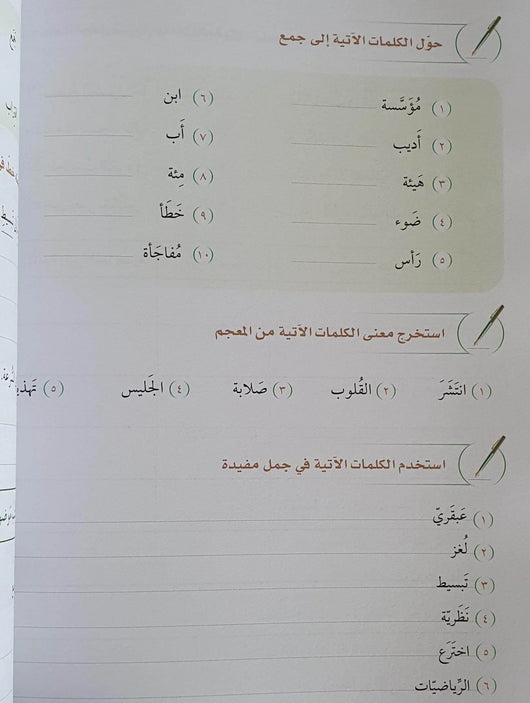 حوّل الكلمات الآتية إلى جمع
(١) مُؤَسَّسة (٦) ابن
(٢) أَديب (٧) أَب
(٣) هَيئة (٨) مِئة
(٤) ضَوء (٩) خَطَأ
(٥) رَأس (١٠) مُفاجَأة
استخرج معنى الكلمات الآتية من المعجم
(١) انتَشَرَ (٢) القُلوب (٣) صَلابة (٤) الجَليس (٥)
استخدم الكلمات الآتية في جمل مفيدة
(١) عَبقَريّ
(٢) لُغز
(٣) تَبسيط
(٤) نَظَريّة
(٥) اختَرَع
(٦) الرِّياضيّات